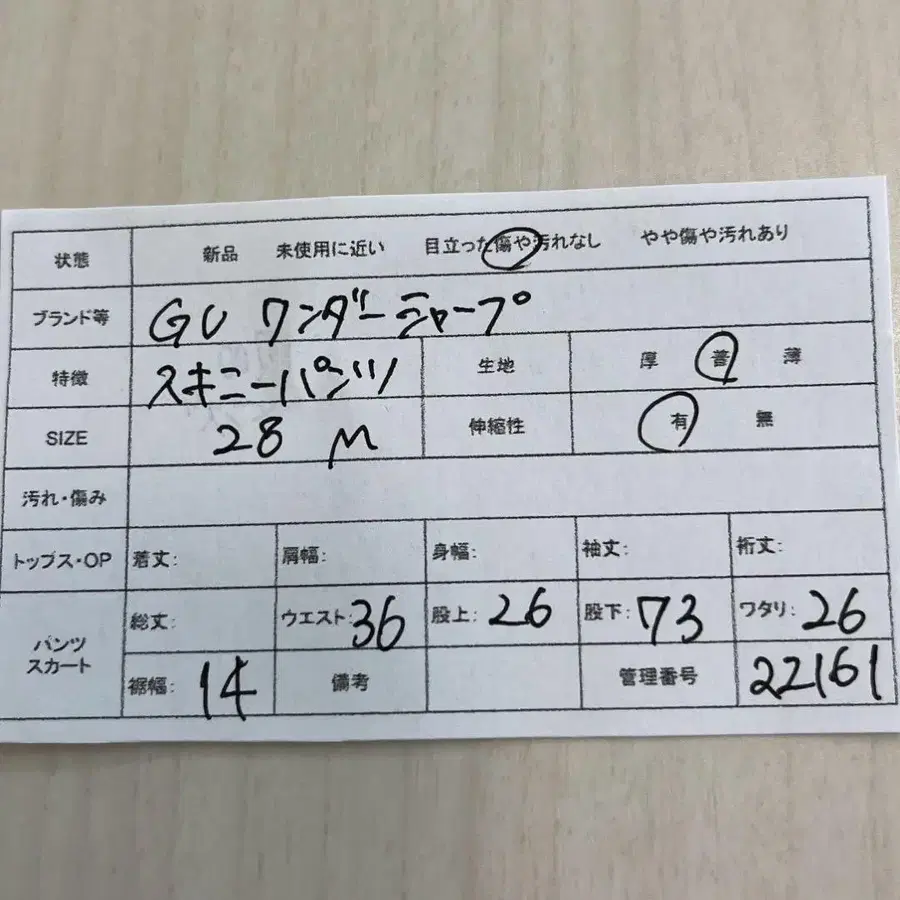 状態 新品 未使用に近い 目立った傷や汚れなし やや傷や汚れあり
ブランド等 GU ワンダーシャープ
特徴 スキニーパンツ 生地 厚 普 薄
SIZE 28 M 伸縮性 有 無
汚れ・傷み
トップス・OP 着丈: 肩幅: 身幅: 袖丈: 裄丈:
パンツ スカート 総丈: ウエスト: 36 股上: 26 股下: 73 ワタリ: 26
裾幅: 14 備考 管理番号 22161